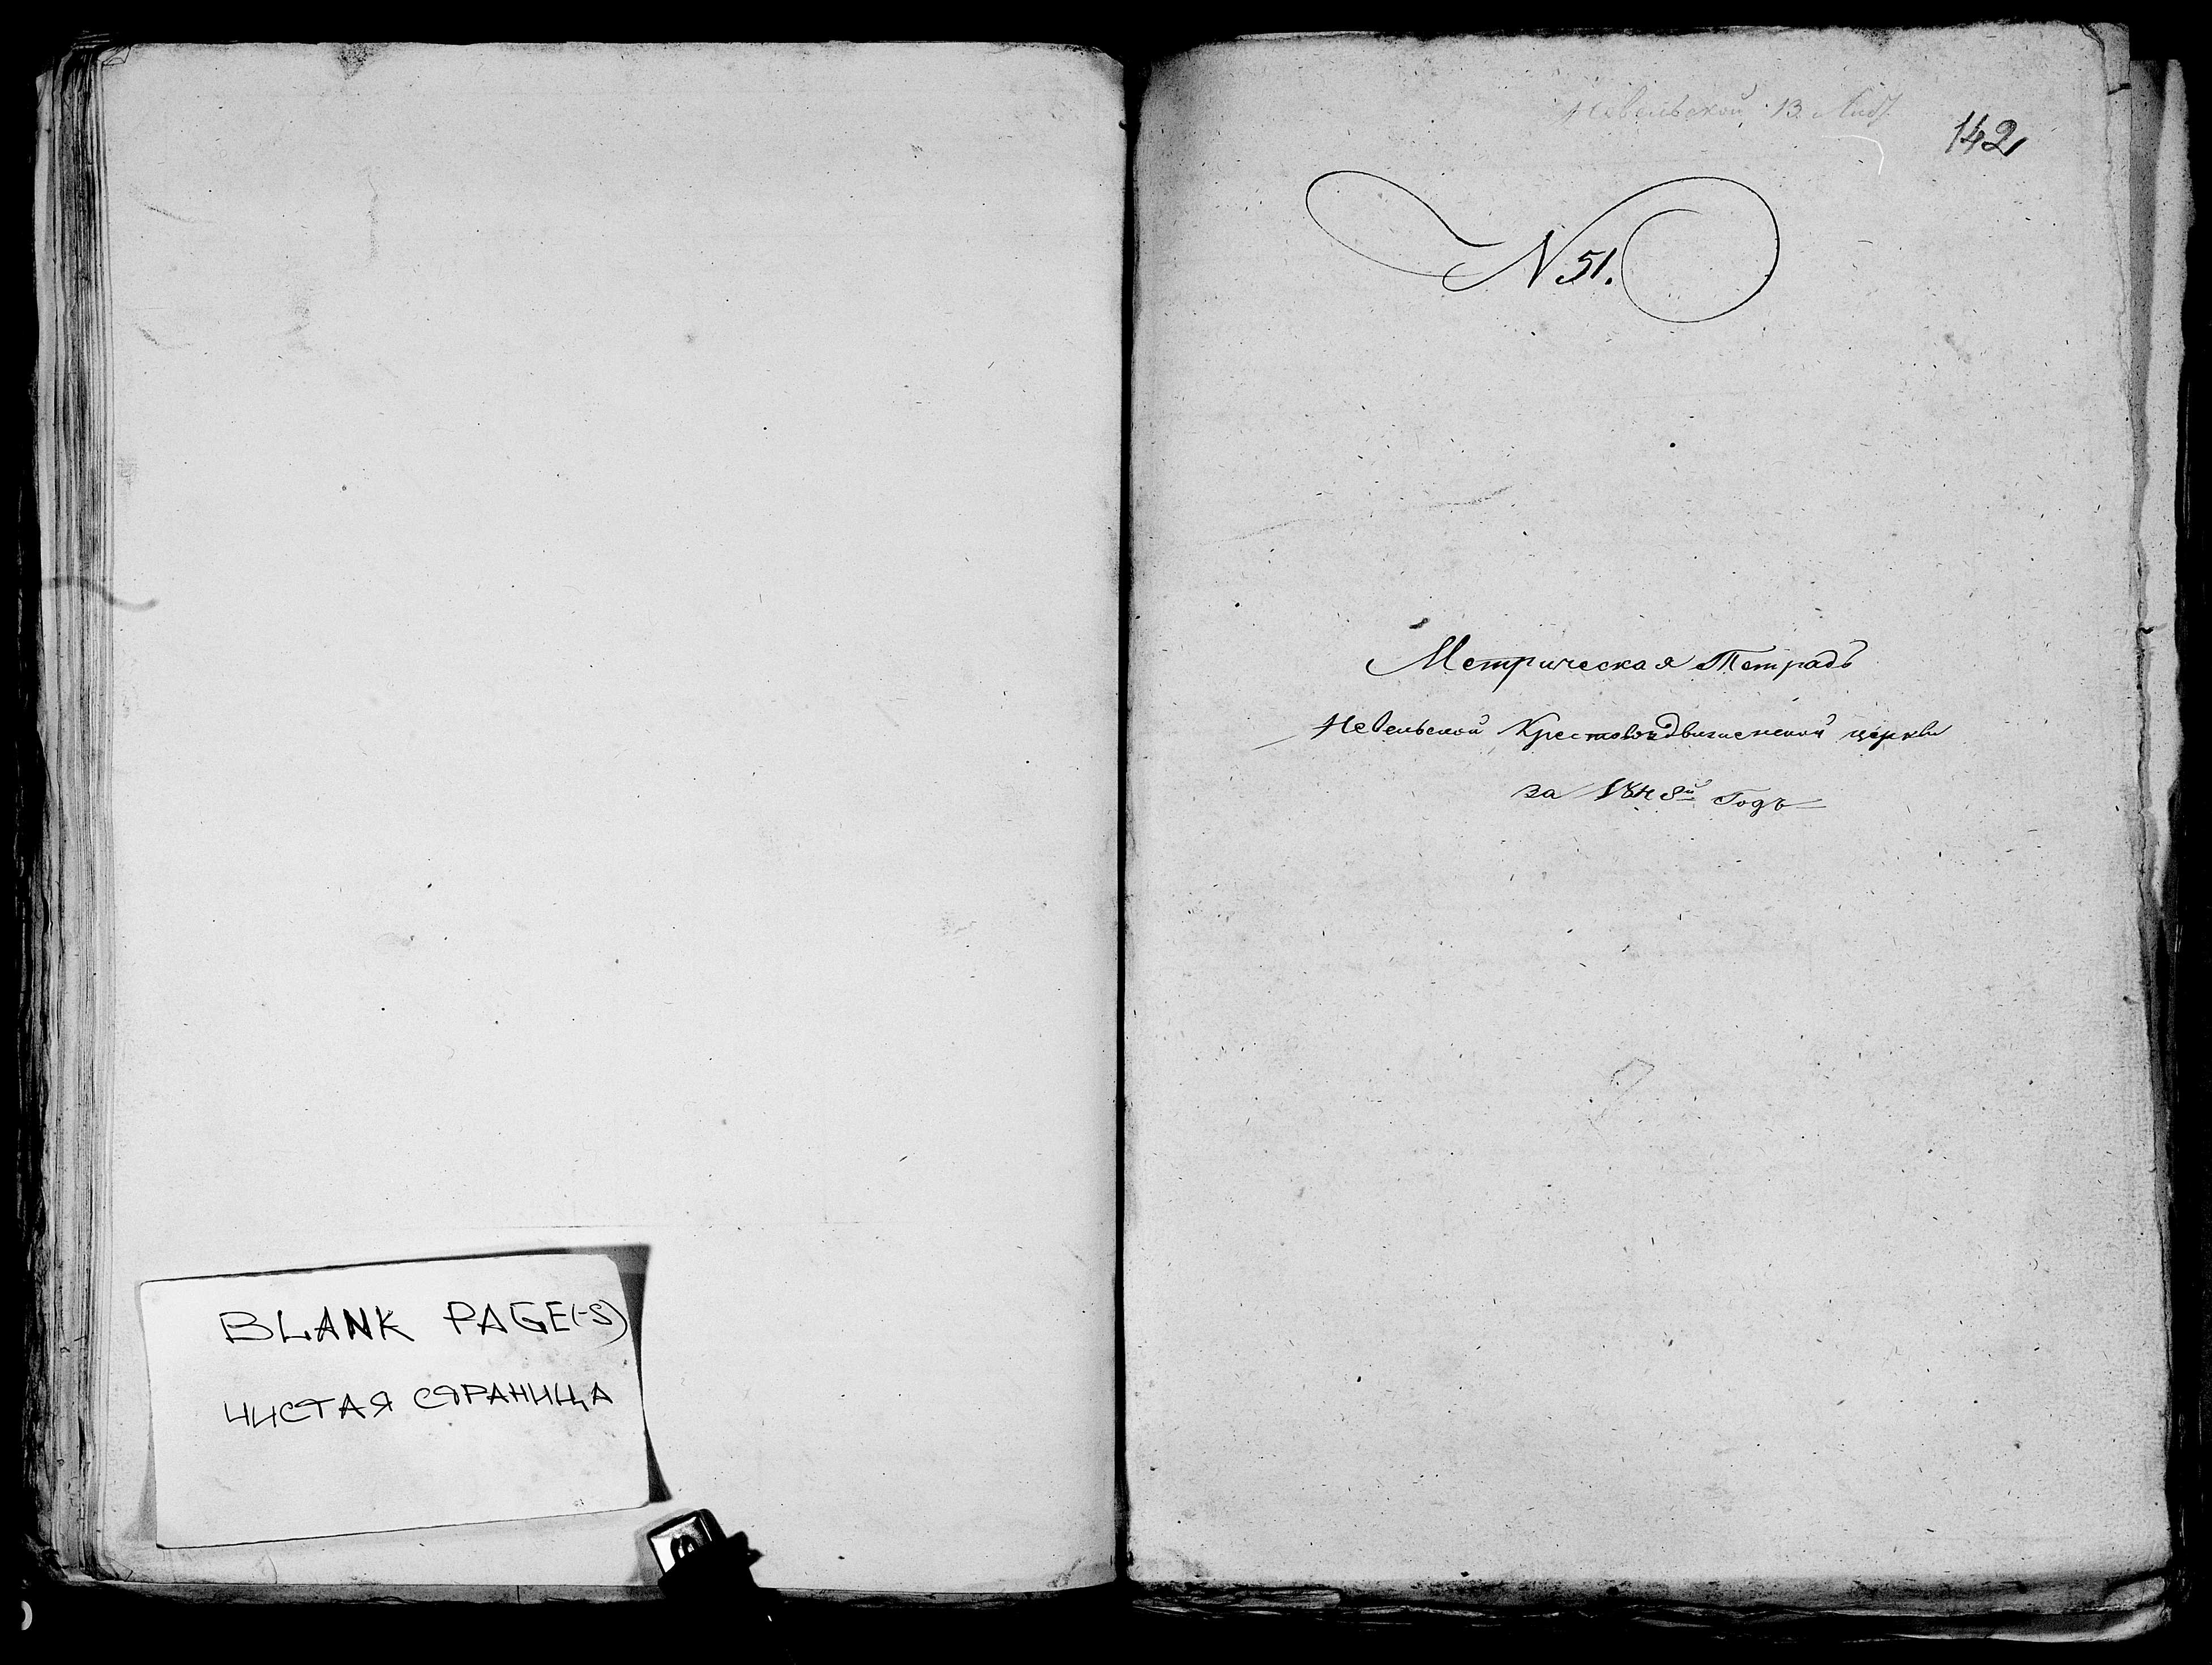 BLANK PAGE(-S)
ЧИСТАЯ СТРАНИЦА
Невельской 13
142
N 51.
Метрическая Тетрадь
Невельской Крестовоздвиженской церкви
за 1848й Годъ